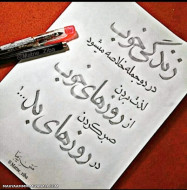 زندگی خوب
در دو جمله خلاصه میشود
لذت بردن
از روزهای خوب
صبر کردن
در روزهای بد...!